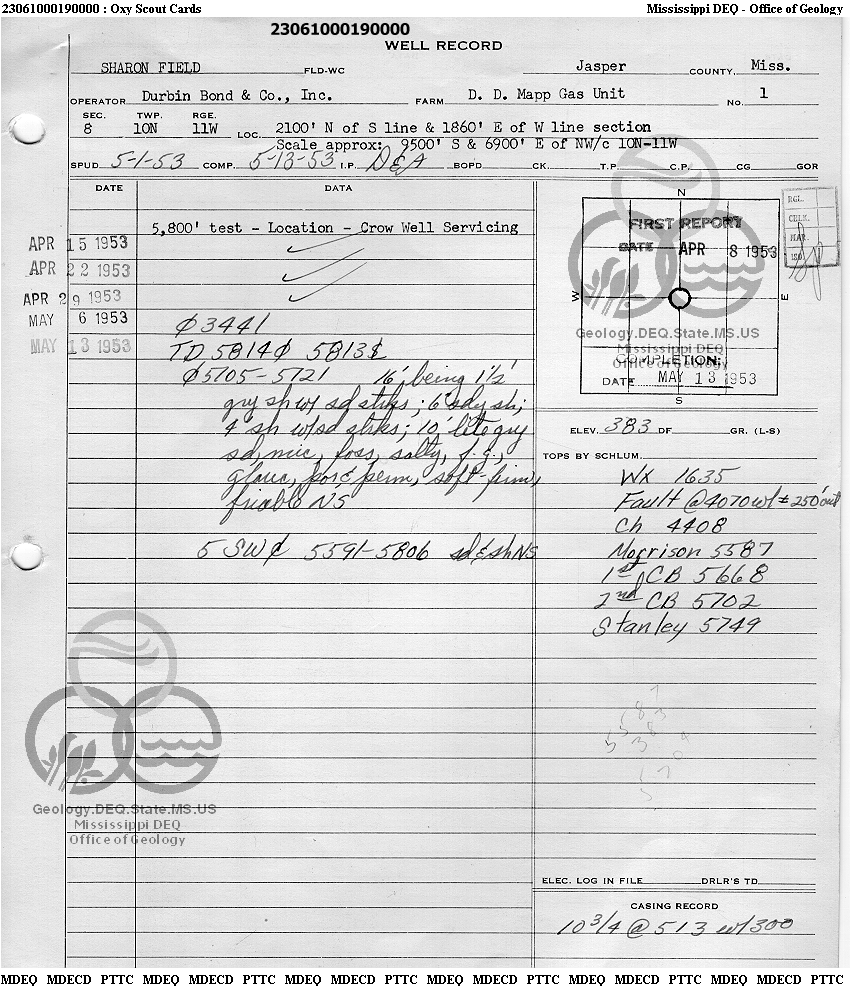 23061000190000 : Oxy Scout Cards
Mississippi DEQ - Office of Geology
23061000190000
WELL RECORD
SHARON FIELD FLD-WC Jasper COUNTY, Miss.
OPERATOR Durbin Bond & Co., Inc. FARM D. D. Mapp Gas Unit NO. 1
SEC. TWP. RGE.
8 10N 11W LOC. 2100' N of S line & 1860' E of W line section
Scale approx: 9500' S & 6900' E of NW/c 10N-11W
SPUD 5-1-53 COMP. 5-13-53 I.P. D&A BOPD CK. T.P. C.P. CG GOR
DATE DATA
5,800' test - Location - Crow Well Servicing
APR 15 1953
APR 22 1953
APR 29 1953
MAY 6 1953 ₵ 3441
MAY 13 1953 TD 5814₵ 5813$
₵ 5705-5721 16', being 1½'
gry sh w/ sd strks; 6' sdy sh;
4' sh w/sd strks; 10' lite gry
sd, mic, foss, salty, f.g.,
glauc, por & perm, soft-firm,
friable NS
5 SW₵ 5591-5806 sd & sh NS
N
FIRST REPORT
DATE APR 8 1953
W E
COMPLETION:
DATE MAY 13 1953
S
RGL.
CHLK.
MAR.
ISO.
Geology.DEQ.State.MS.US
Mississippi DEQ
Office of Geology
ELEV. 383 DF GR. (L-S)
TOPS BY SCHLUM.
Wx 1635
Fault @ 4070 w/ ± 250' out
Ch 4408
Morrison 5587
1st CB 5668
2nd CB 5702
Stanley 5749
Geology.DEQ.State.MS.US
Mississippi DEQ
Office of Geology
ELEC. LOG IN FILE DRLR'S TD
CASING RECORD
10 3/4 @ 513 w/300
MDEQ MDECD PTTC MDEQ MDECD PTTC MDEQ MDECD PTTC MDEQ MDECD PTTC MDEQ MDECD PTTC MDEQ MDECD PTTC